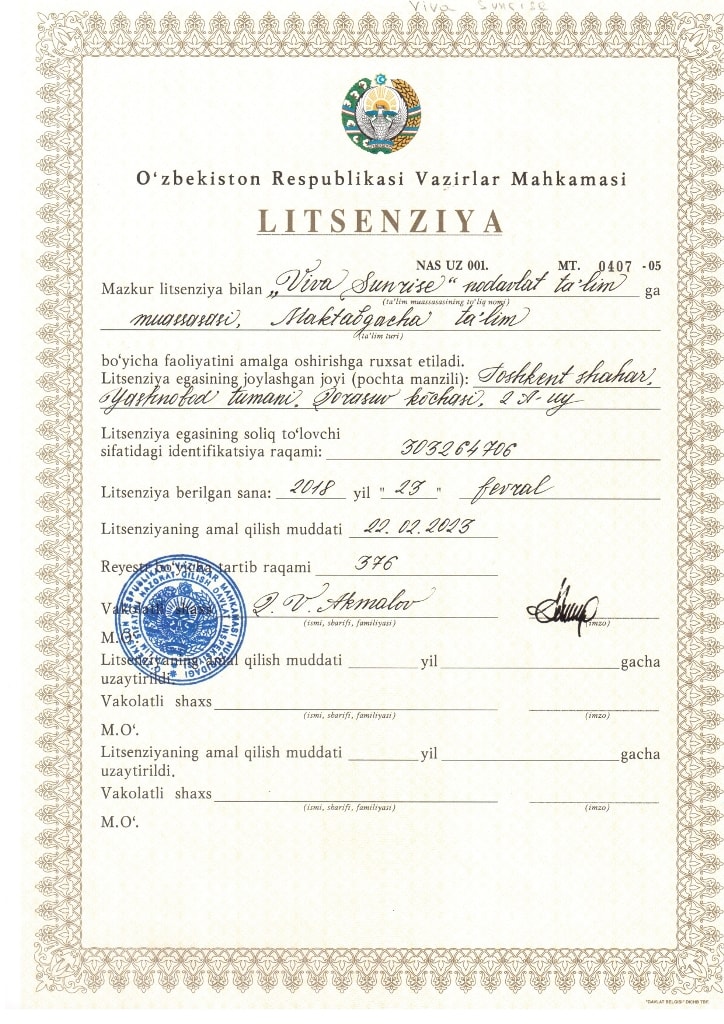 Viva Sunrise
O‘zbekiston Respublikasi Vazirlar Mahkamasi
LITSENZIYA
NAS UZ 001. MT. 0407 -05
Mazkur litsenziya bilan „Viva Sunrise“ nodavlat ta'lim ga
(ta'lim muassasasining to'liq nomi)
muassasasi, Maktabgacha ta'lim
(ta'lim turi)
bo‘yicha faoliyatini amalga oshirishga ruxsat etiladi.
Litsenziya egasining joylashgan joyi (pochta manzili): Toshkent shahar,
Yashnobod tumani, Qorasuv kochasi, 2 A-uy
Litsenziya egasining soliq to‘lovchi
sifatidagi identifikatsiya raqami: 303264706
Litsenziya berilgan sana: 2018 yil " 23 " fevral
Litsenziyaning amal qilish muddati 22.02.2023
Reyestr bo‘yicha tartib raqami 376
Vakolatli shaxs V. Akmalov
(ismi, sharifi, familiyasi) (imzo)
M.O‘.
Litsenziyaning amal qilish muddati yil gacha
uzaytirildi.
Vakolatli shaxs
(ismi, sharifi, familiyasi) (imzo)
M.O‘.
Litsenziyaning amal qilish muddati yil gacha
uzaytirildi.
Vakolatli shaxs
(ismi, sharifi, familiyasi) (imzo)
M.O‘.
"DAVLAT BELGISI" DICHB TBF.